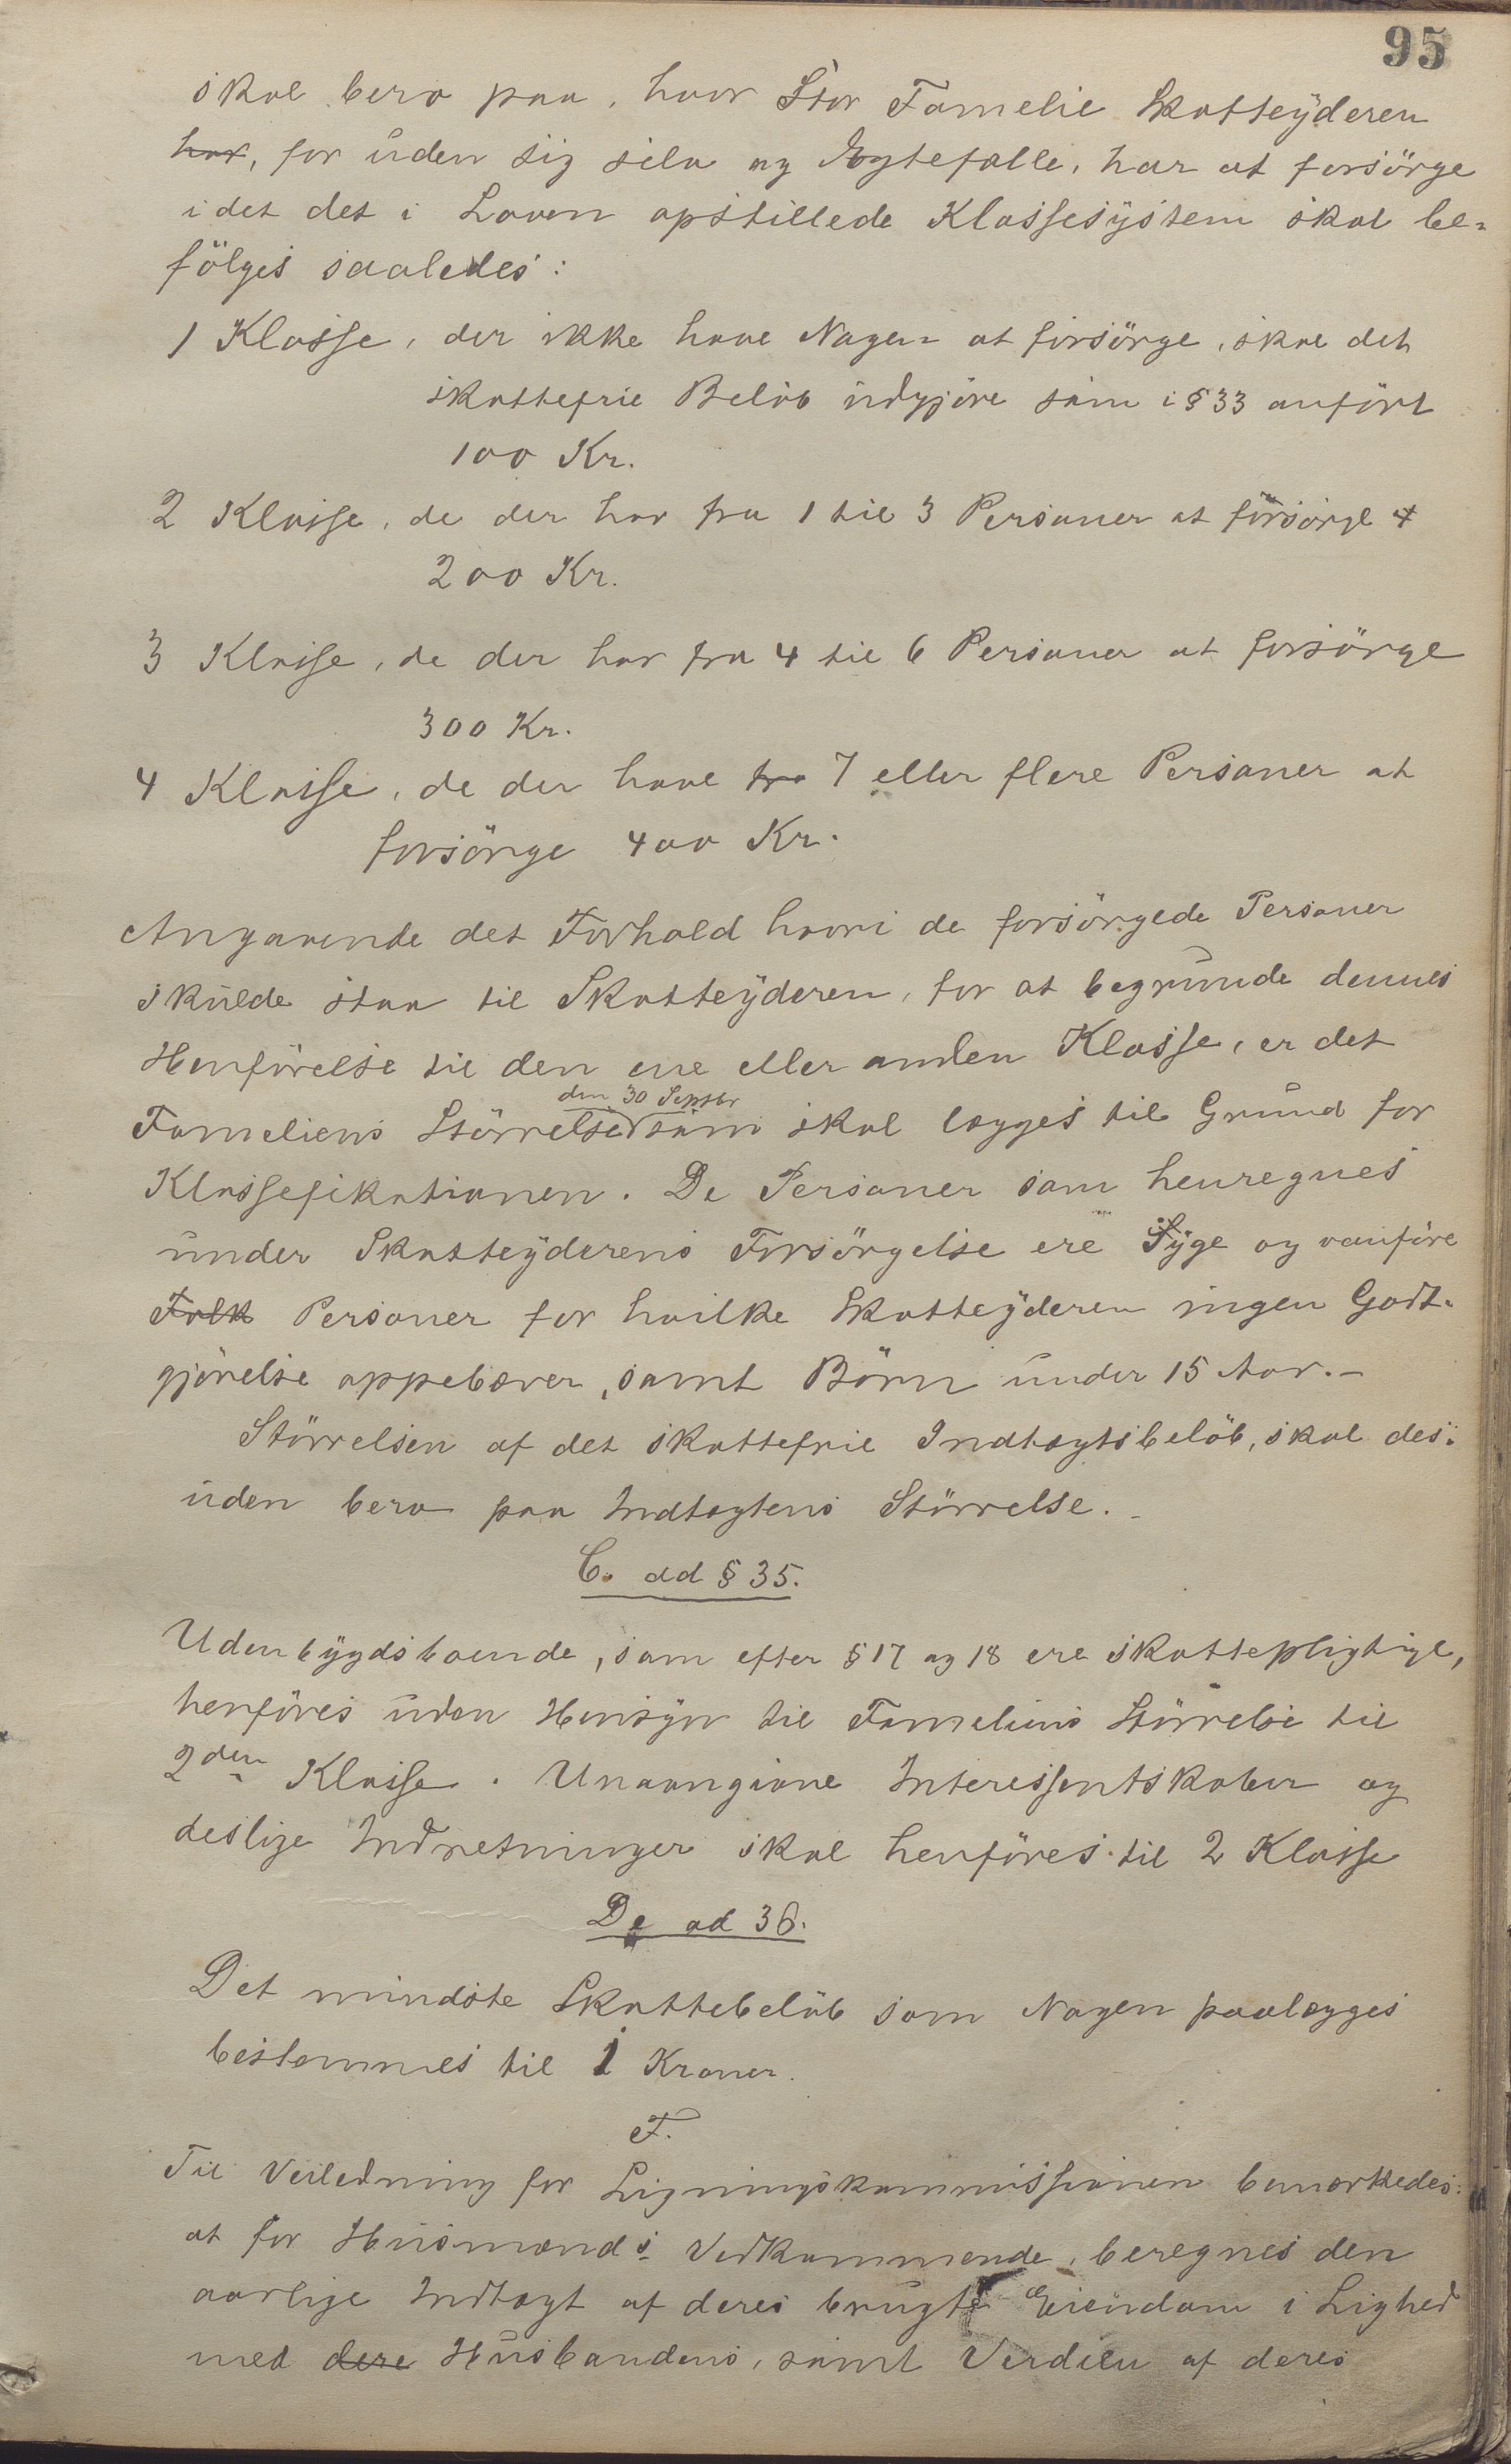 95
skal bero paa, hvor Stor Famelie Skatteÿderen
har, for uden sig selv og Ægtefælle, har at forsörge
i det det i Loven opstillede Klassesÿstem skal be-
fölges saaledes:
1 Klasse, der ikke have Nogen at forsörge, skal det
skattefrie Belöb udgjöre som i § 33 anfört
100 Kr.
2 Klasse, de der har fra 1 til 3 Personer at forsörge
200 Kr.
3 Klasse, de der har fra 4 til 6 Personer at forsörge
300 Kr.
4 Klasse, de der have fra 7 eller flere Personer at
forsörge 400 Kr.
Angaaende det Forhold hvori de forsörgede Personer
skulde staa til Skatteÿderen, for at begrunde dennes
Henförelse til den ene eller anden Klasse, er det
den 30 Septbr
Fameliens Störrelse som skal lægges til Grund for
Klassefikationen. De Personer som henregnes
under Skatteÿderens Forsörgelse ere Sÿge og vanföre
Folk Personer for hvilke Skatteÿderen ingen Godt-
gjörelse oppebærer, samt Börn under 15 Aar.-
Störrelsen af det skattefrie Indtægtsbelöb, skal des-
uden bero paa Indtægtens Störrelse.-
C. ad § 35.
Udenbÿgdsboende, som efter § 17 og 18 ere skattepligtige,
henföres uden Hensÿn til Fameliens Störrelse til
2den Klasse. Unavngivne Interessentskaber og
deslige Indretninger skal henföres til 2 Klasse
De ad 36.
Det mindste Skattebelöb som Nogen paalægges
bestemmes til 1 Kroner.
F.
Til Veiledning for Ligningskommissionen bemærkedes:
at for Husmænds Vedkommende, beregnes den
aarlige Indtægt af deres brugte Eiendom i Lighed
med dere Husbondens, samt Verdien af deres